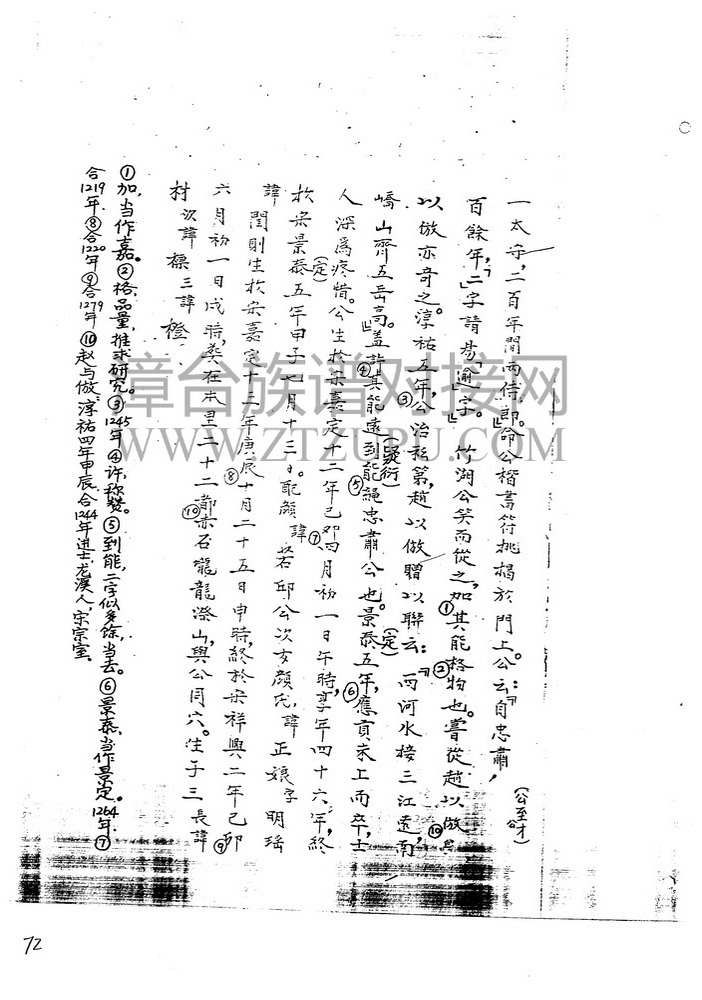 一太守，二百年間兩侍郎。命公楷書符桃揭於門上。公云：『自忠肅，
（公至才公）
百餘年，『二』字請易『逾』字。』竹湖公笑而從之，加①其能格②物也。嘗從趙以倣⑩學
以倣亦奇之。淳祐五年③，公治私第，趙以倣贈以聯云：『兩河水接三江遠，南
嶠山齊五岳高。』蓋許④其能遠到能（疑衍）⑤繩忠肅公也。景泰（定）五年⑥，應貢未上而卒，士
人深為疼惜。公生於宋嘉定十二年己卯⑦四月初一日午時，享年四十六年，終
於宋景泰（定）五年甲子七月十三日。配顏諱若邱公次女顏氏，諱正娘，字明瑤
諱閨則生於宋嘉定十三年庚辰⑧十月二十五日申時，終於宋祥興二年己卯⑨
六月初一日戌時，葬在本里二十二都赤石龍潦山，與公同穴。生子三長諱
村次諱標三諱橙
①加，当作嘉。②格，品量，推求研究。③1245年④许，称赞。⑤到能，二字似多馀，当去。⑥景泰，当作景定。1264年⑦
合1219年。⑧合1220年⑨合1279年⑩赵与倣，淳祐四年甲辰，合1244年进士，龙溪人，宋宗室。
章台族谱对接网
WWW.ZTZUPU.COM
72